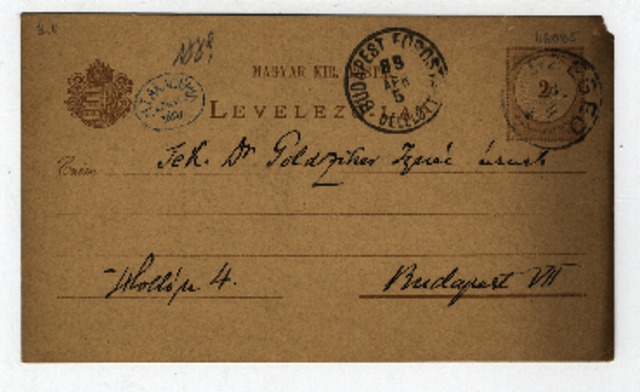 1889
46085
MAGYAR KIR. POSTA
LEVELEZ
BUDAPEST FŐPOSTA
89
APR
5
DÉLELŐTT
Czim
Tek. Dr Goldziher Ignác úrnak
Holló u 4.
Budapest VII